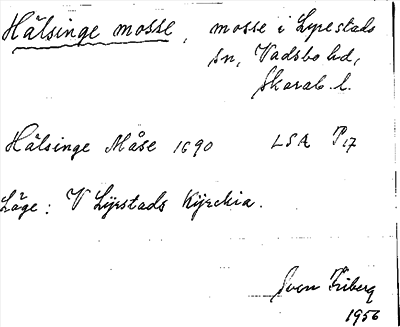 Hälsinge mosse, mosse i Lyrestads
sn, Vadsbo hd,
Skarab. l.
Hälsinge Måse 1690 LSA P17
Läge: V Lyrstads Kyrckia.
Sven Friberg
1956